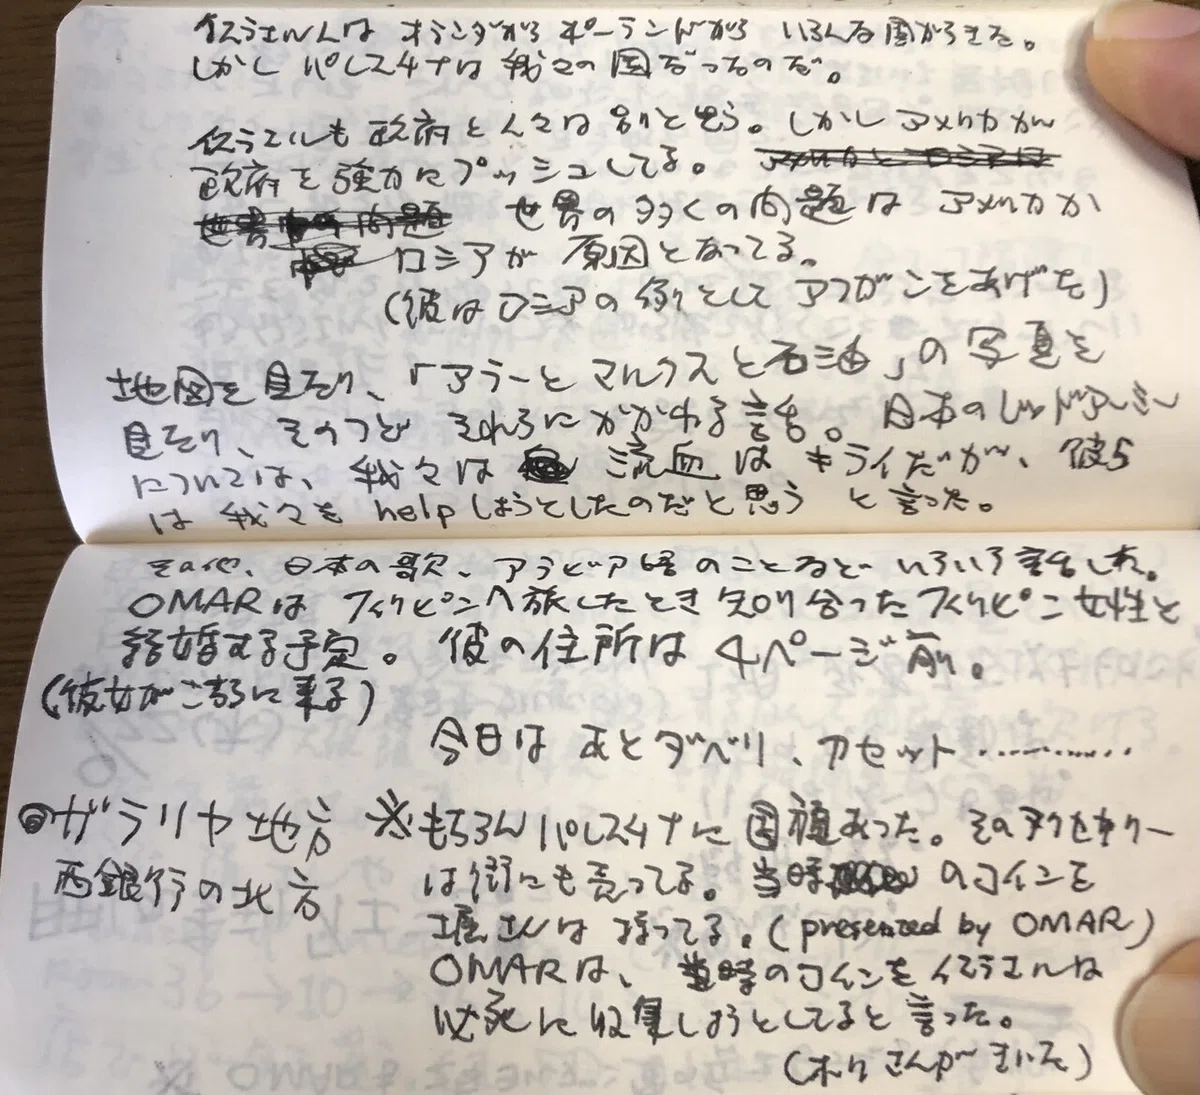 イスラエル人は オランダから ポーランドから いろんな国からきた。
しかし パレスチナは 我々の国だったのだ。
イスラエルも 政府と人々は 別と思う。しかし アメリカが
政府を強力にプッシュしてる。
世界の多くの問題は アメリカか
ロシアが 原因となってる。
(彼はロシアの例として アフガンをあげた)
地図を見たり、「アラーと マルクスと石油」の写真を
見たり、そのつど それらにかかわる話。 日本のレッドアーミー
については、我々は 流血は キライだが、彼ら
は 我々を helpしようとしたのだと思う と言った。
その他、日本の歌、アラビア語のことなど いろいろ話した。
OMARは フィリピンへ旅したとき知り合ったフィリピン女性と
結婚する予定。 彼の住所は 4ページ前。
(彼女がこちらに来る)
今日は あとダベリ、カセット…………
◎ガラリヤ地方
西銀行の北方
※もちろんパレスチナに 国旗あった。そのアクセサリー
は街にも売ってる。当時のコインを
堀さんは 持ってる。(presented by OMAR)
OMARは、 当時のコインを イスラエルは
必死に収集しようとしてると 言った。